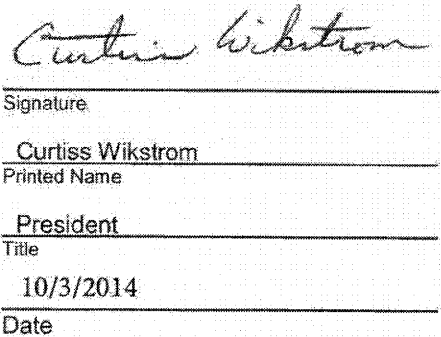 Curtiss Wikstrom
Signature
Curtiss Wikstrom
Printed Name
President
Title
10/3/2014
Date